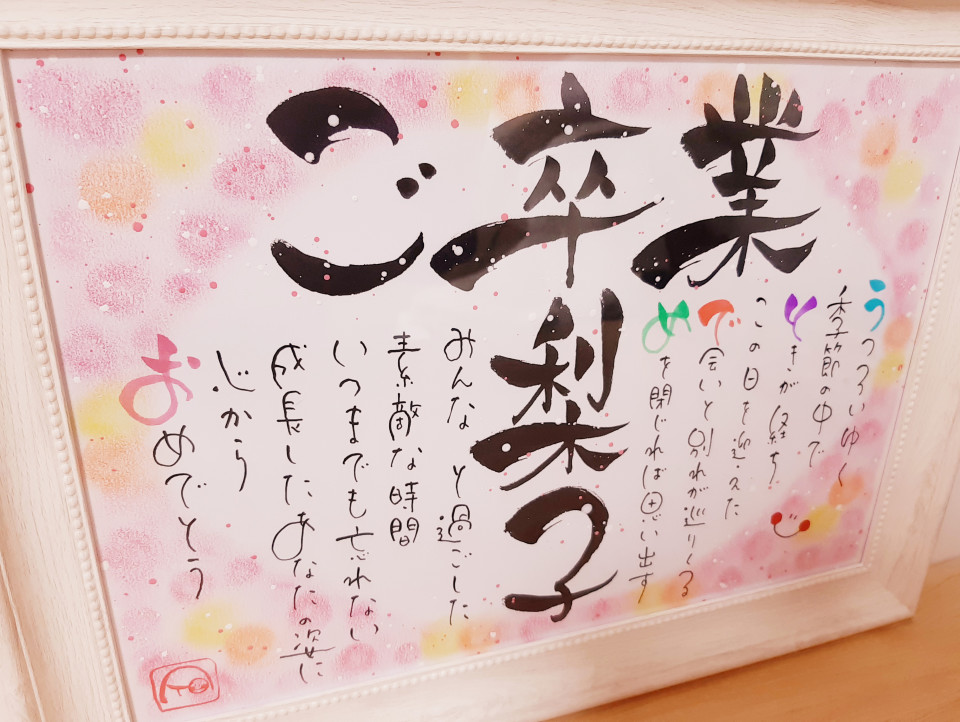 ご卒業
梨子
うつろいゆく
季節の中で
ときが経ち
この日を迎えた
で会いと別れが巡りくる
めを閉じれば思い出す
みんなと過ごした
素敵な時間
いつまでも忘れない
成長したあなたの姿に
心から
おめでとう